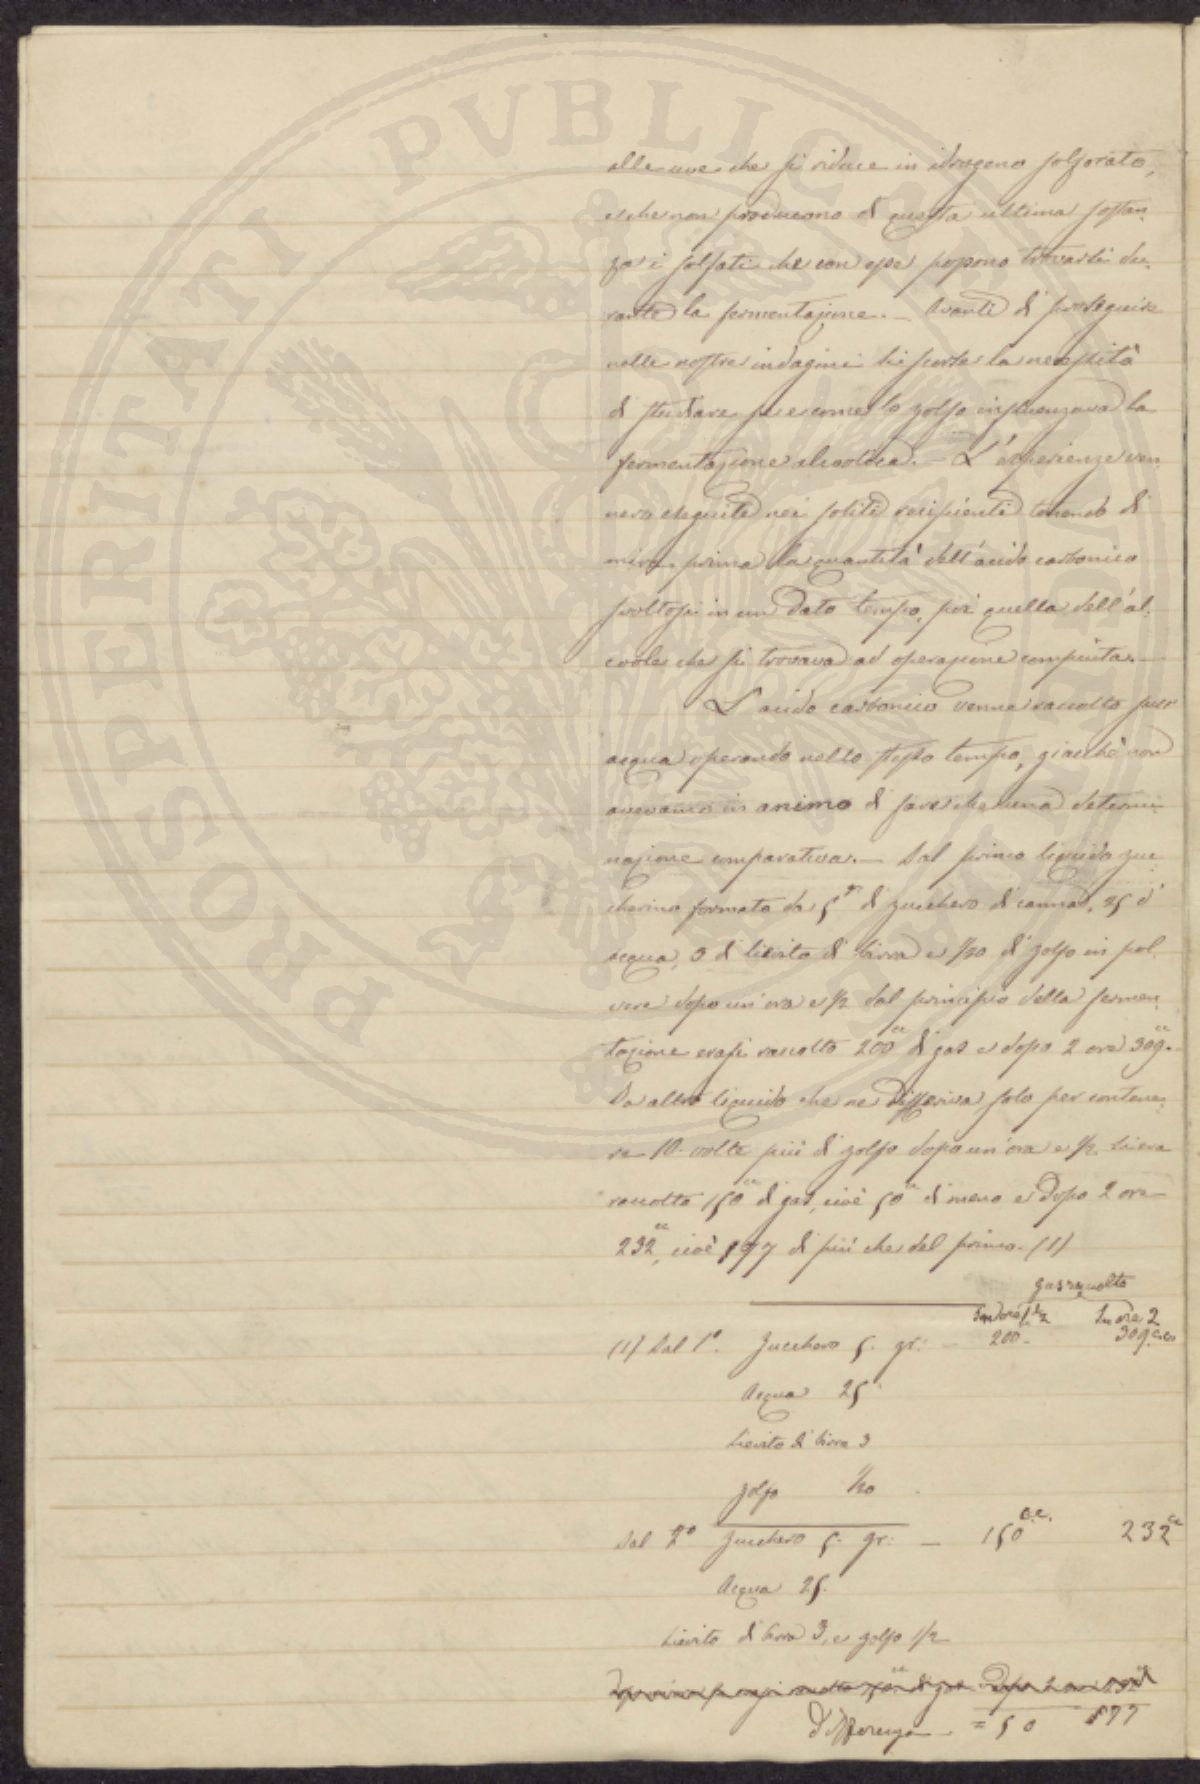 alle uve che si riduce in idrogeno solforato,
e che non producono di questa ultima sostan-
za i solfati che con esse possono trovarsi du-
rante la fermentazione. — Avanti di proseguire
nelle nostre indagini la necessità
di studiare se e come lo zolfo influenzava la
fermentazione alcoolica. — L'esperienze ven-
nero eseguite nei soliti recipienti tenendo di
mira prima la quantità dell'acido carbonico
svoltosi in un dato tempo, poi quella dell'al-
coole che si trovava ad operazione compiuta. —
L'acido carbonico venne raccolto sull'
acqua operando nello stesso tempo, giacchè non
avevamo in animo di fare che una determi-
nazione comparativa. — Dal primo liquido zuc-
cherino formato da 5 gr di zucchero di canna, 25 d'
acqua, 3 di lievito di birra e 1/20 di zolfo in pol-
vere dopo un'ora e 1/2 dal principio della fermen-
tazione erasi raccolto 200 cc di gas e dopo 2 ore 309 cc. —
Da altro liquido che ne differiva solo per contene-
re 10 volte più di zolfo dopo un'ora e 1/2 si era
raccolto 150 cc di gas, cioè 50 cc di meno e dopo 2 ore
232 cc, cioè 77 di più che del primo. (1)
gas raccolto
In ore 1 1/2 In ore 2
(1) Dal 1°. Zucchero 5. gr: — 200 — 309 c.c.
Acqua 25
Lievito di birra 3
Zolfo 1/20
Dal 2° Zucchero 5. gr: — 150 c.c. 232 cc
Acqua 25.
Lievito di birra 3, e zolfo 1/2
Differenza = 50 77